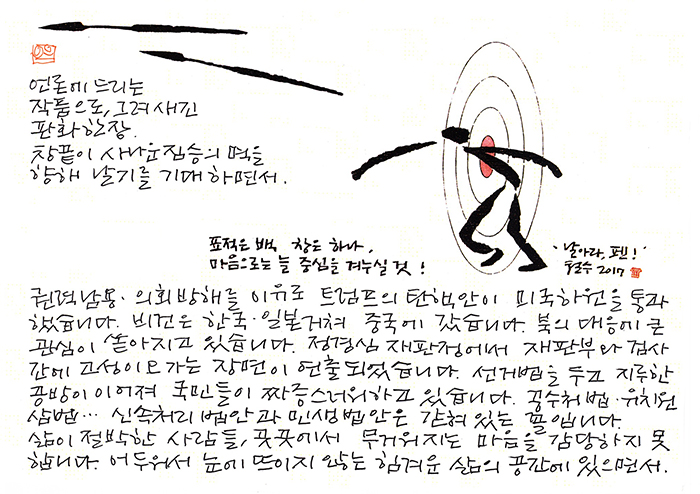 언론에 드리는
작품으로, 그려 새긴
판화 한 장.
창끝이 사나운 짐승의 멱을
향해 날기를 기대하면서.
표적은 백 창은 하나.
마음으로는 늘 중심을 겨누실 것!
'날아라, 펜!'
철수 2017
권력남용·의회방해를 이유로 트럼프의 탄핵안이 미국하원을 통과
했습니다. 비건은 한국·일본거쳐 중국에 갔습니다. 북의 대응에 큰
관심이 쏟아지고 있습니다. 정경심 재판정에서 재판부와 검사
간에 고성이 오가는 장면이 연출되었습니다. 선거법을 두고 지루한
공방이 이어져 국민들이 짜증스러워하고 있습니다. 공수처법·유치원
삼법… 신속처리 법안과 민생법안은 갇혀 있는 꼴입니다.
삶이 절박한 사람들, 곳곳에서 무거워지는 마음을 감당하지 못
합니다. 어두워서 눈에 뜨이지 않는 힘겨운 삶의 공간에 있으면서.